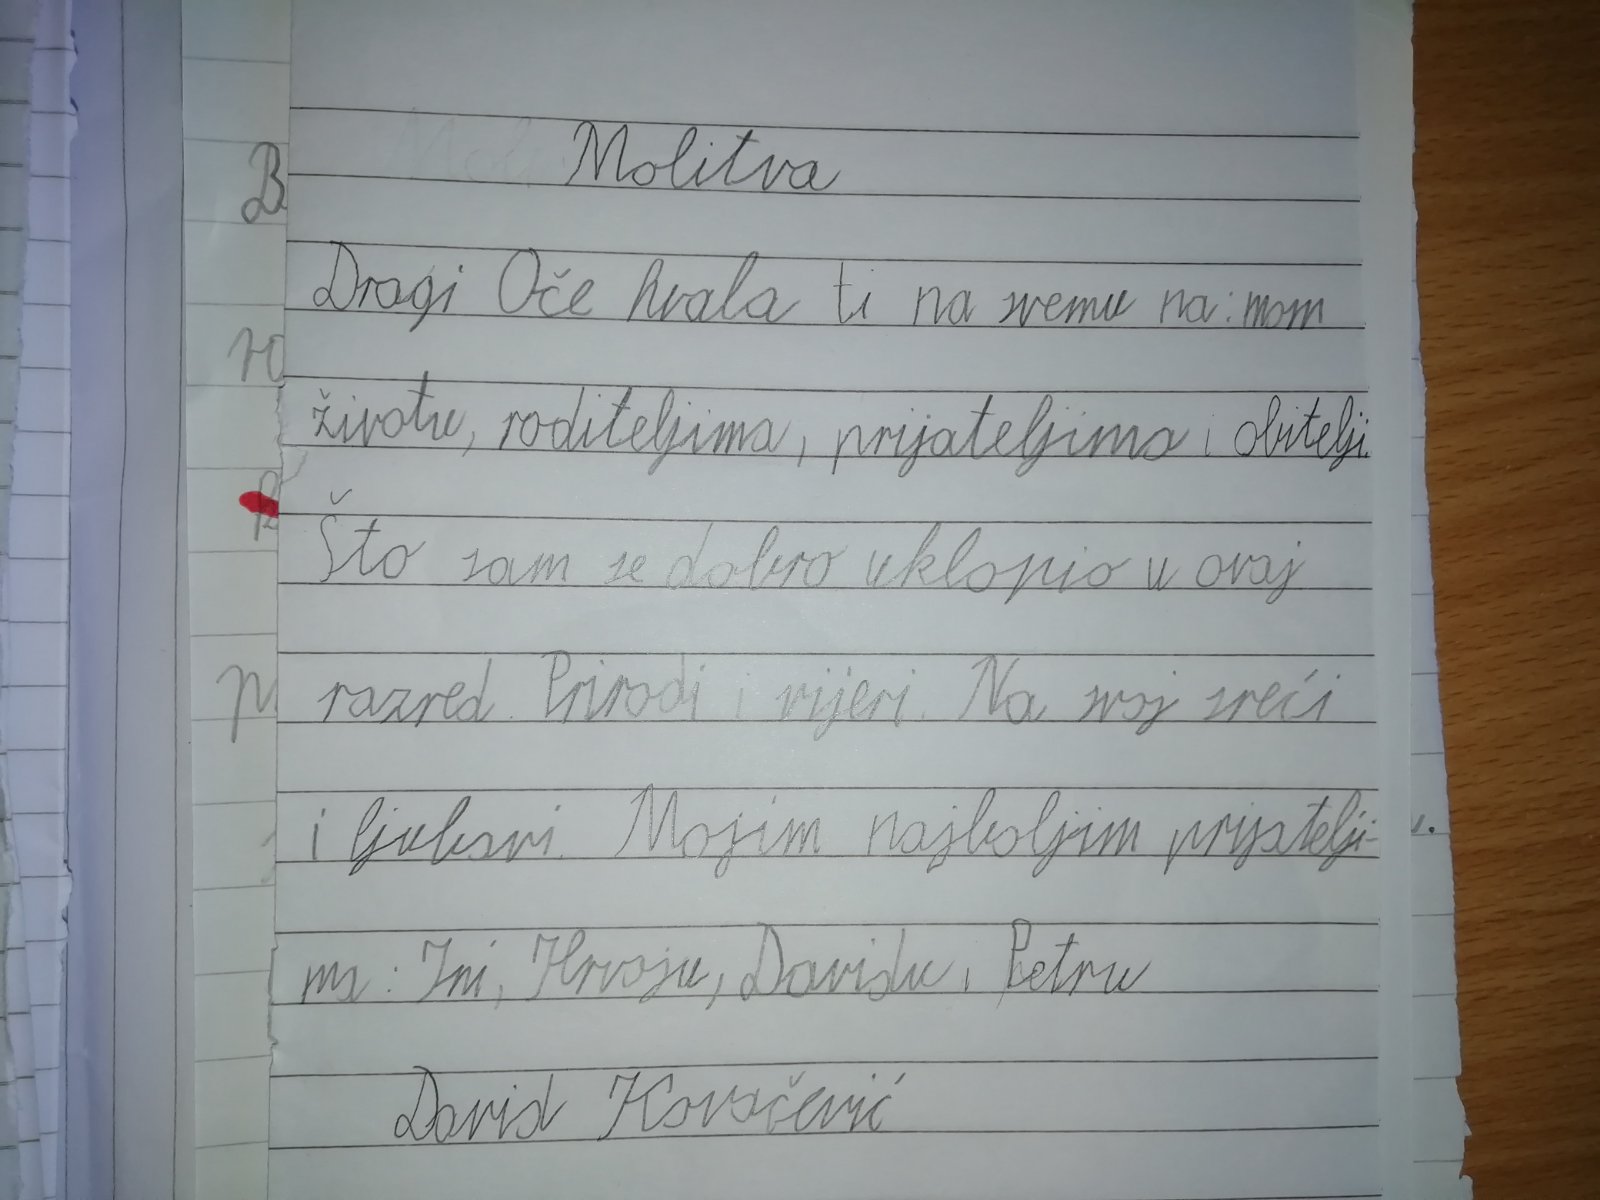 Molitva
Dragi Oče hvala ti na svemu na: mom
životu, roditeljima, prijateljima i obitelji.
Što sam se dobro uklopio u ovaj
razred. Prirodi i vjeri. Na svoj sreći
i ljubavi. Mojim najboljim prijatelji-
ma: Ini, Hrvoju, Davidu i Petru
David Kovačević